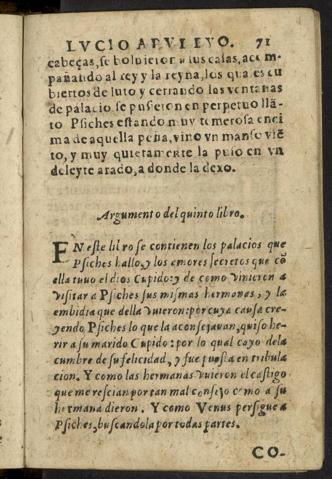 LVCIO APVLEYO. 71
cabeças, se boluieron a sus casas, acom
pañando al rey y la reyna, los quales cu
biertos de luto y cerrando las ventanas
de palacio se pusieron en perpetuo llã-
to Psiches estando muy temerosa enci
ma de aquella peña, vino vn manso viẽ
to, y muy quietamente la puso en vn
deleyte a rado, a donde la dexo.
Argumento del quinto libro.
EN este libro se contienen los palacios que
Psiches hallo, y los amores secretos que cõ
ella tuuo el dios Cupido: y de como vinieron a
visitar a Psiches sus mismas hermanas, y la
embidia que della vuieron: por cuya causa cre-
yendo Psiches lo que la aconsejauan, quiso he-
rir a su marido Cupido: por lo qual cayo de la
cumbre de su felicidad, y fue puesta en tribula
cion. Y como las hermanas vuieron el castigo
que merescian por tan mal consejo como a su
hermana dieron. Y como Venus persigue a
Psiches, buscandola por todas partes.
CO-